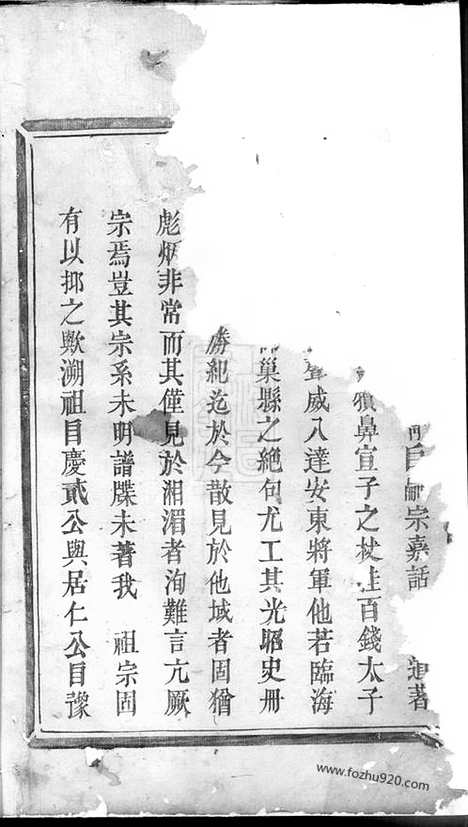 宗嘉話
著
鼻宣子之杖上百錢太子
威八達安東將軍他若臨海
巢縣之絕句尤工其光昭史冊
勝紀迄於今散見於他域者固猶
彪炳非常而其僅見於湘湄者洵難言亢厥
宗焉豈其宗系未明譜牒未著我 祖宗固
有以抑之歟溯祖自慶貳公與居仁公自豫
www.fozhu920.com